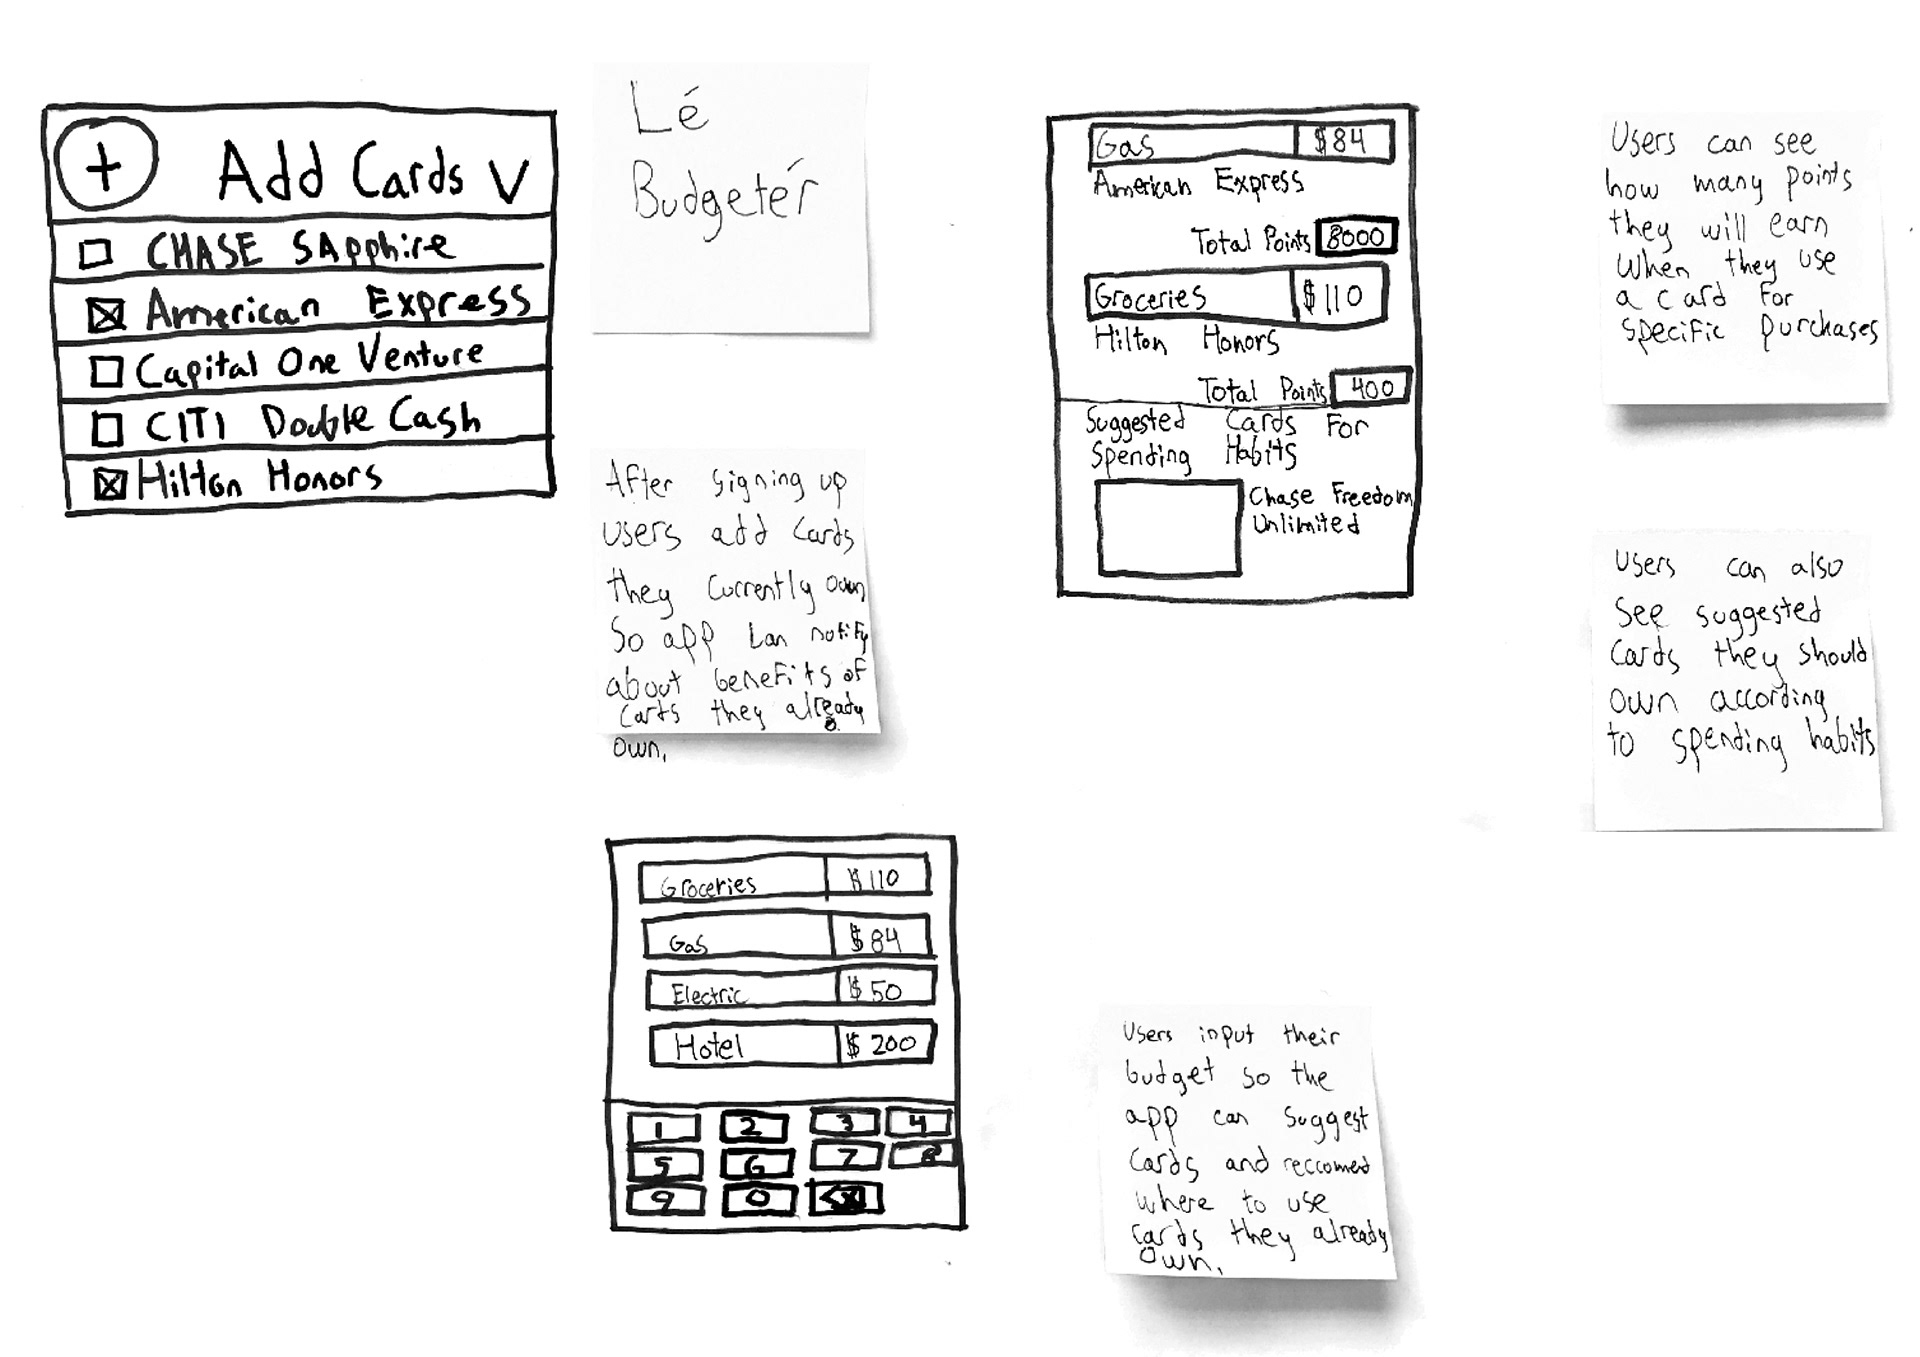 + Add Cards V
CHASE SApphire
American Express
Capital One Venture
CITI Double Cash
Hilton Honors
Lé
Budgetér
After signing up
users add Cards
they Currently own
So app can notify
about benefits of
Carts they already
own.
Gas $84
American Express
Total Points 8000
Groceries $110
Hilton Honors
Total Points 400
Suggested Cards For
Spending Habits
Chase Freedom
Unlimited
Users can see
how many points
they will earn
When they use
a card For
specific purchases
Users can also
see suggested
Cards they should
own according
to spending habits
Groceries $110
Gas $84
Electric $50
Hotel $200
1 2 3 4
5 6 7 8
9 0 <x
Users input their
budget so the
app can suggest
Cards and reccomend
where to use
Cards they already
Own.